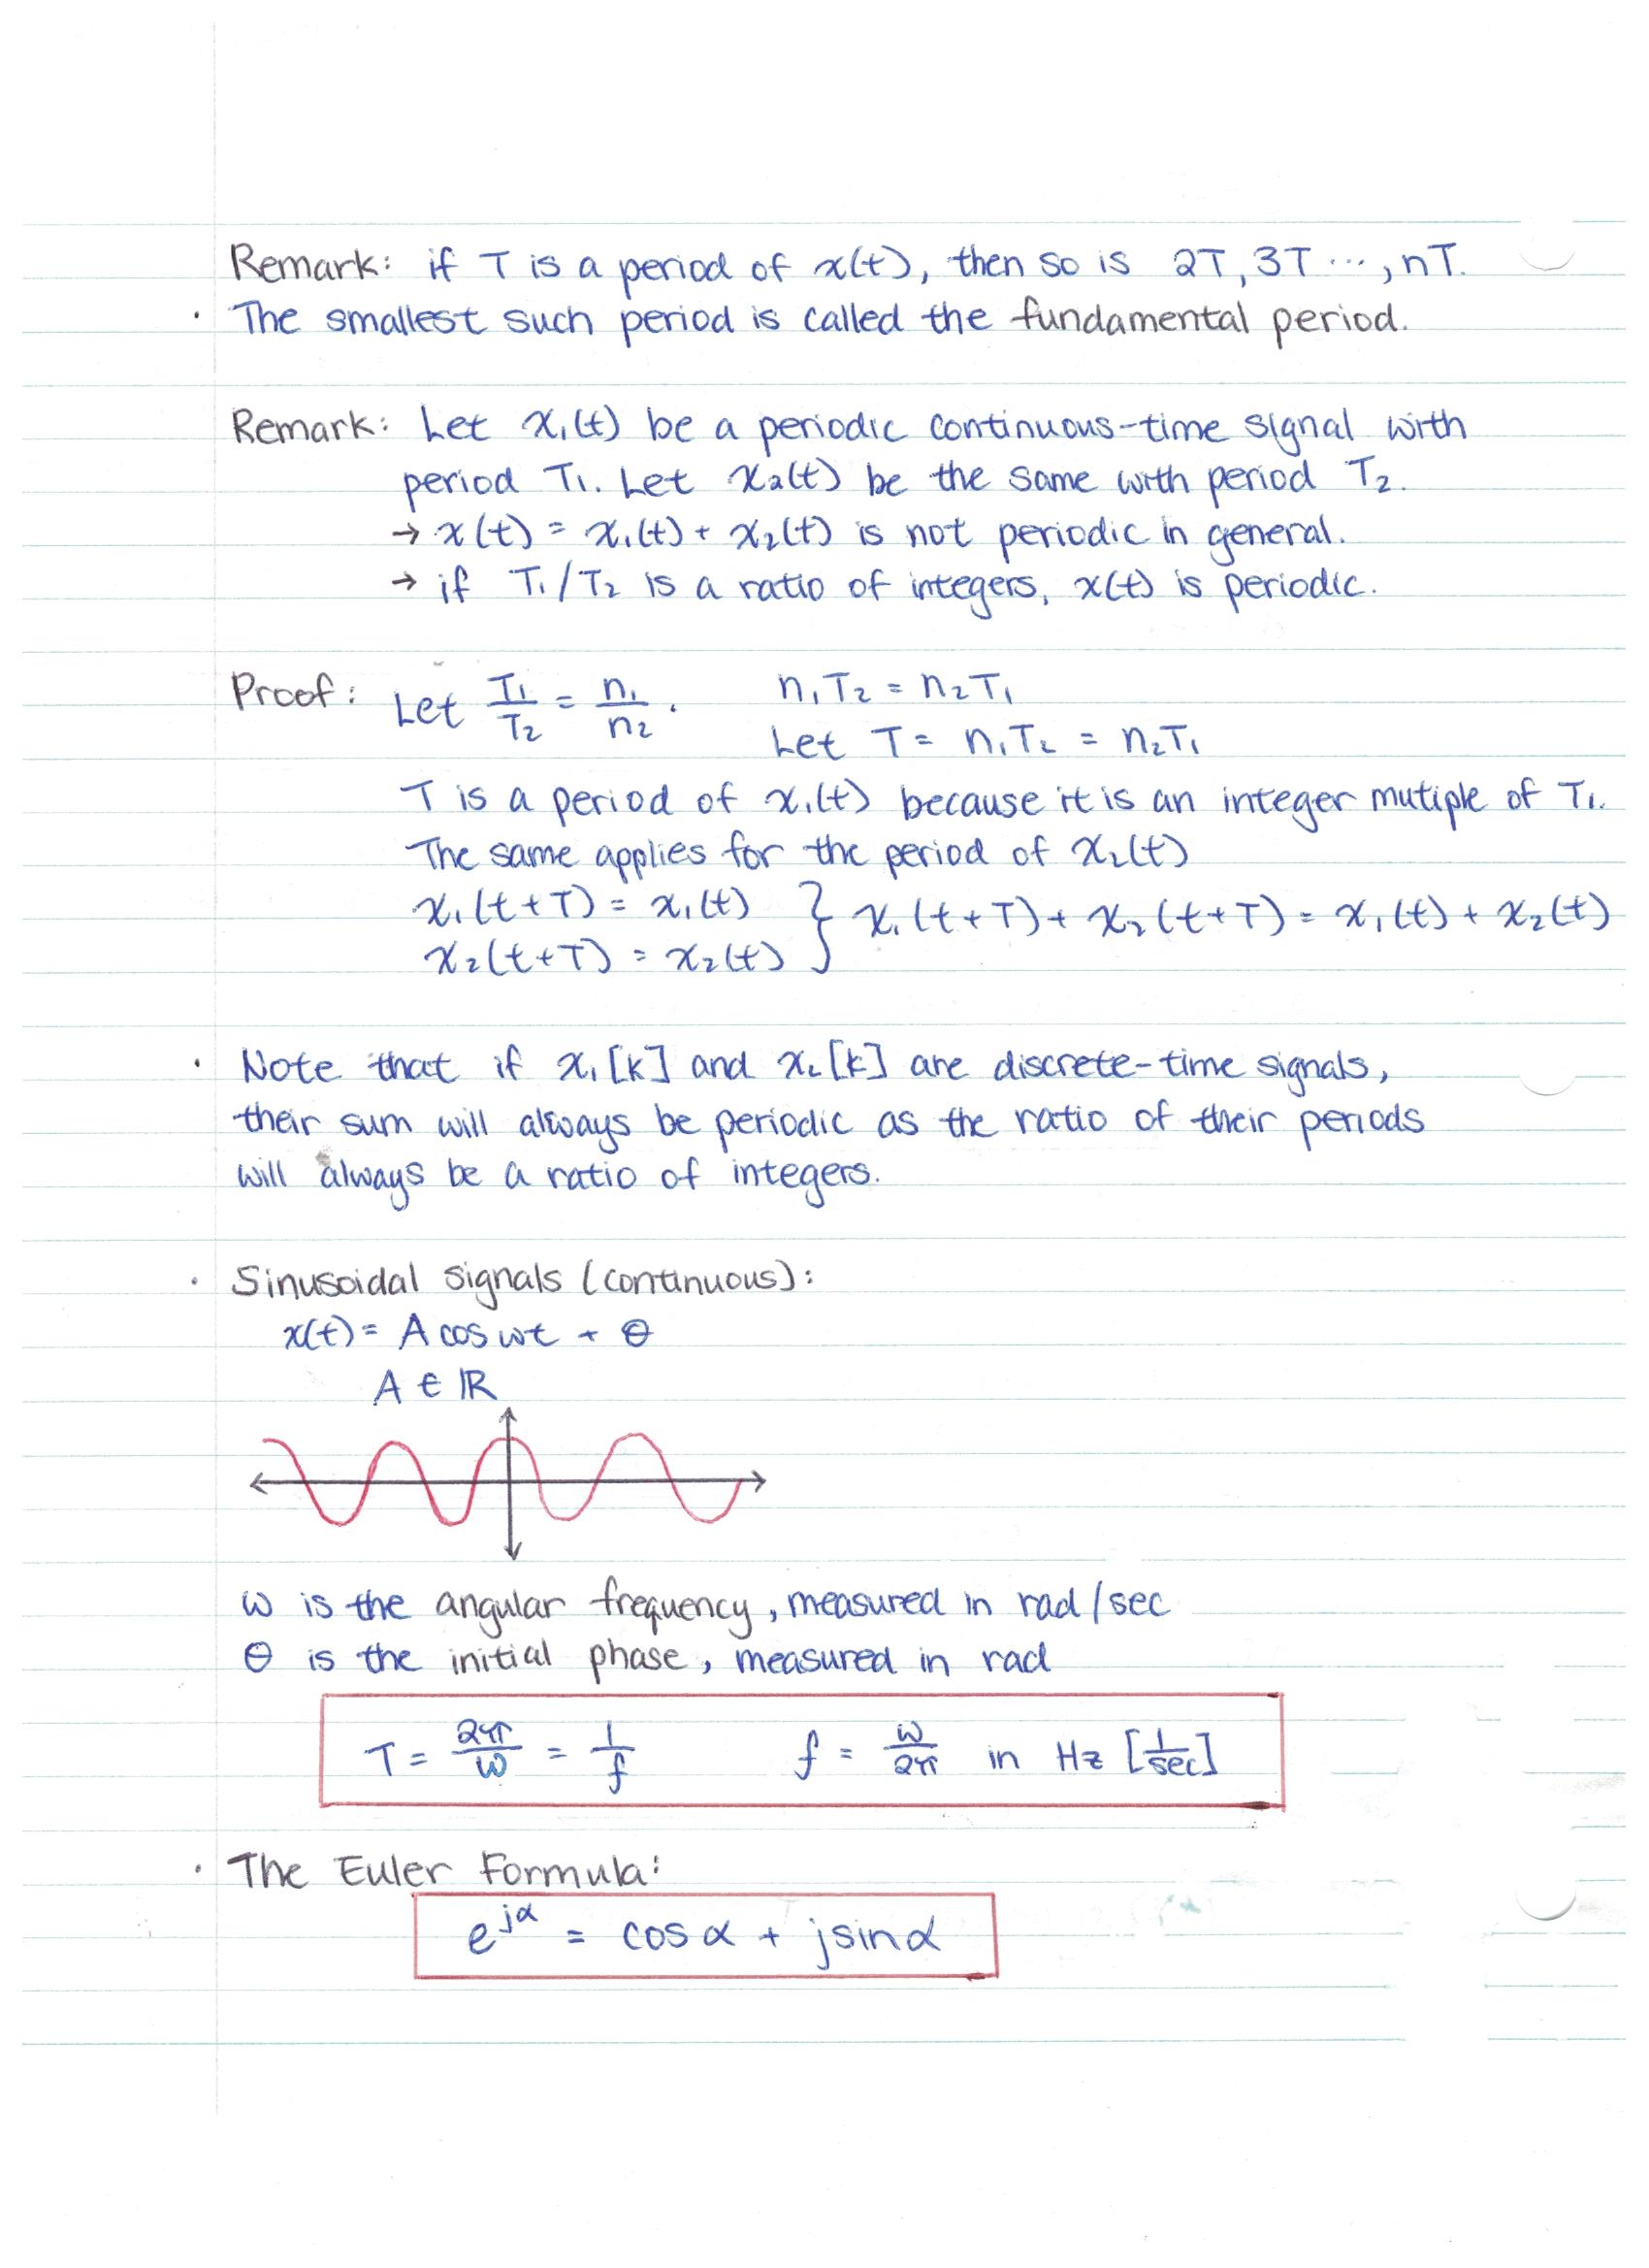 Remark: if T is a period of x(t), then so is 2T, 3T ..., nT.
· The smallest such period is called the fundamental period.
Remark: Let x₁(t) be a periodic continuous-time signal with
period T₁. Let x₂(t) be the same with period T₂.
→ x(t) = x₁(t) + x₂(t) is not periodic in general.
→ if T₁/T₂ is a ratio of integers, x(t) is periodic.
Proof: Let T₁/T₂ = n₁/n₂. n₁T₂ = n₂T₁
Let T = n₁T₂ = n₂T₁
T is a period of x₁(t) because it is an integer mutiple of T₁.
The same applies for the period of x₂(t)
x₁(t+T) = x₁(t) } x₁(t+T) + x₂(t+T) = x₁(t) + x₂(t)
x₂(t+T) = x₂(t)
· Note that if x₁[k] and x₂[k] are discrete-time signals,
their sum will always be periodic as the ratio of their periods
will always be a ratio of integers.
· Sinusoidal signals (continuous):
x(t) = A cos ωt + θ
A ∈ ℝ
ω is the angular frequency, measured in rad/sec
θ is the initial phase, measured in rad
T = 2π/ω = 1/f f = ω/2π in Hz [1/sec]
· The Euler Formula:
e^jα = cos α + jsin α